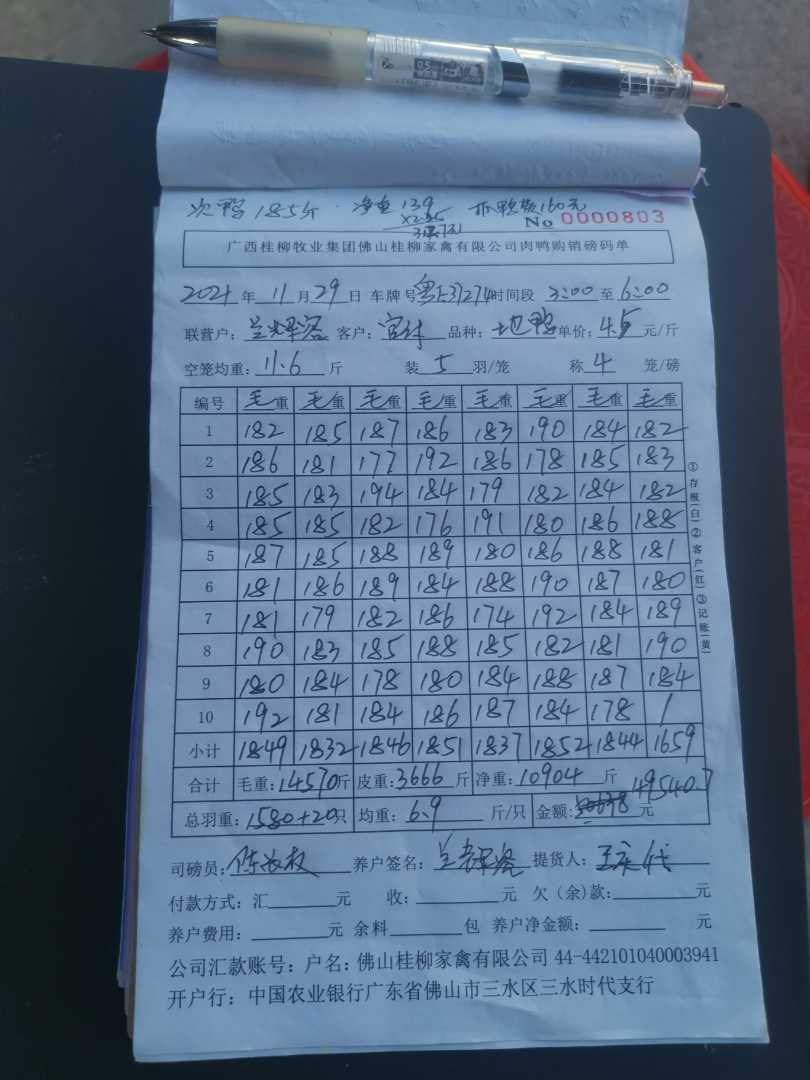 次鸭 185斤 净重 139 扣鸭款160元
No 0000803
广西桂柳牧业集团佛山桂柳家禽有限公司肉鸭购销磅码单
2021 年 11 月 29 日 车牌号 时间段 3:00 至 6:00
联营户: 客户: 品种: 地鸭 单价: 4.5 元/斤
空笼均重: 11.6 斤 装 5 羽/笼 称 4 笼/磅
编号 毛重 毛重 毛重 毛重 毛重 毛重 毛重 毛重
1 182 185 187 186 183 190 184 182
2 186 181 177 192 186 178 185 183
3 185 183 194 184 179 182 184 182
4 185 185 182 176 191 180 186 188
5 187 185 188 189 180 186 188 181
6 181 186 189 184 188 190 187 180
7 181 179 182 186 174 192 184 189
8 190 183 185 188 185 182 181 190
9 180 184 178 180 184 188 187 184
10 192 181 184 186 187 184 178 /
小计 1849 1832 1846 1851 1837 1852 1844 1659
合计 毛重: 14570 斤 皮重: 3666 斤 净重: 10904 斤 49540.7
总羽重: 1580+20 只 均重: 6.9 斤/只 金额: 元
司磅员: 养户签名: 提货人:
付款方式: 汇 元 收: 元 欠(余)款: 元
养户费用: 元 余料 包 养户净金额: 元
公司汇款账号: 户名: 佛山桂柳家禽有限公司 44-442101040003941
开户行: 中国农业银行广东省佛山市三水区三水时代支行
①存根(白)②客户(红)③记账(黄)